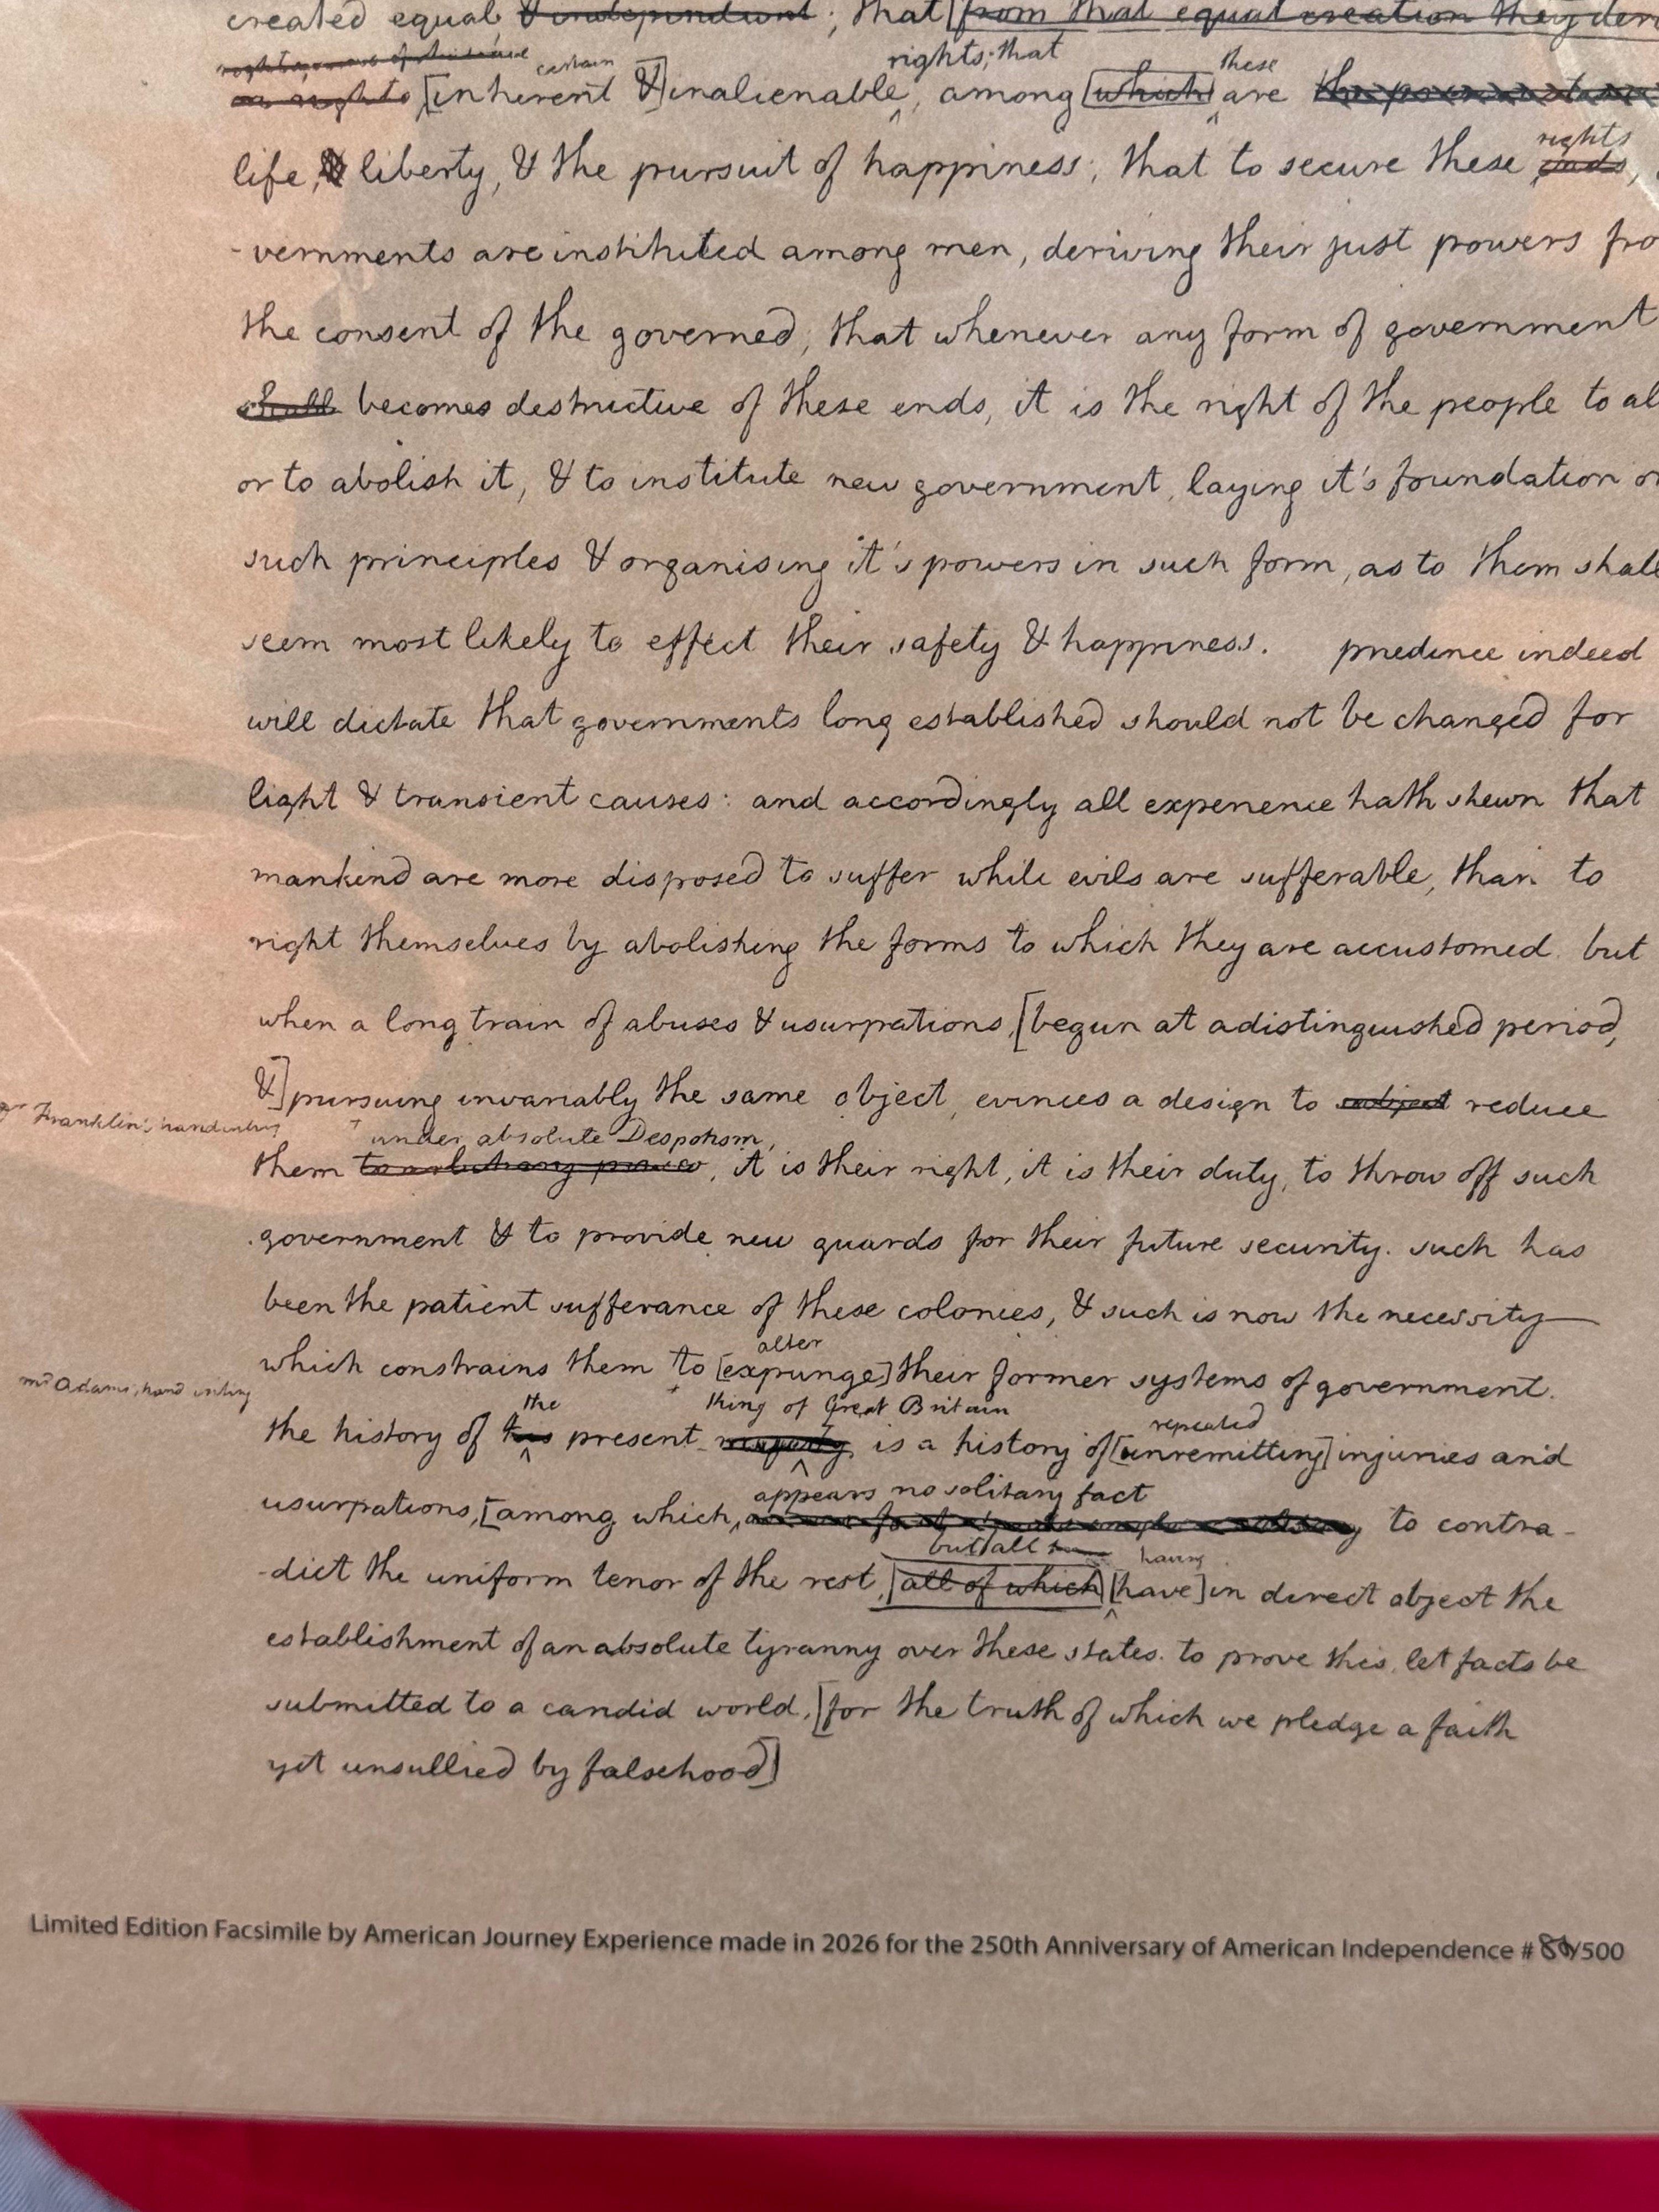 created equal & independant; that [from that equal creation they
certain rights; that these
[inherent &] inalienable, among [which] are
life, & liberty, & the pursuit of happiness; that to secure these ends,
rights
-vernments are instituted among men, deriving their just powers fro
the consent of the governed; that whenever any form of government
shall becomes destructive of these ends, it is the right of the people to al
or to abolish it, & to institute new government, laying it's foundation on
such principles & organising it's powers in such form, as to them shall
seem most likely to effect their safety & happiness. prudence indeed
will dictate that governments long established should not be changed for
light & transient causes: and accordingly all experience hath shewn that
mankind are more disposed to suffer while evils are sufferable, than to
right themselves by abolishing the forms to which they are accustomed. but
when a long train of abuses & usurpations, [begun at a distinguished period,
&] pursuing invariably the same object, evinces a design to subject reduce
Franklin's handwriting under absolute Despotism,
them to arbitrary power, it is their right, it is their duty, to throw off such
government & to provide new guards for their future security. such has
been the patient sufferance of these colonies, & such is now the necessity
alter
which constrains them to [expunge] their former systems of government.
mr Adams' hand writing the king of Great Britain repeated
the history of his present majesty, is a history of [unremitting] injuries and
appears no solitary fact
usurpations, [among which, to contra-
but all having
-dict the uniform tenor of the rest, [all of which] [have] in direct object the
establishment of an absolute tyranny over these states. to prove this, let facts be
submitted to a candid world, [for the truth of which we pledge a faith
yet unsullied by falsehood]
Limited Edition Facsimile by American Journey Experience made in 2026 for the 250th Anniversary of American Independence # /500